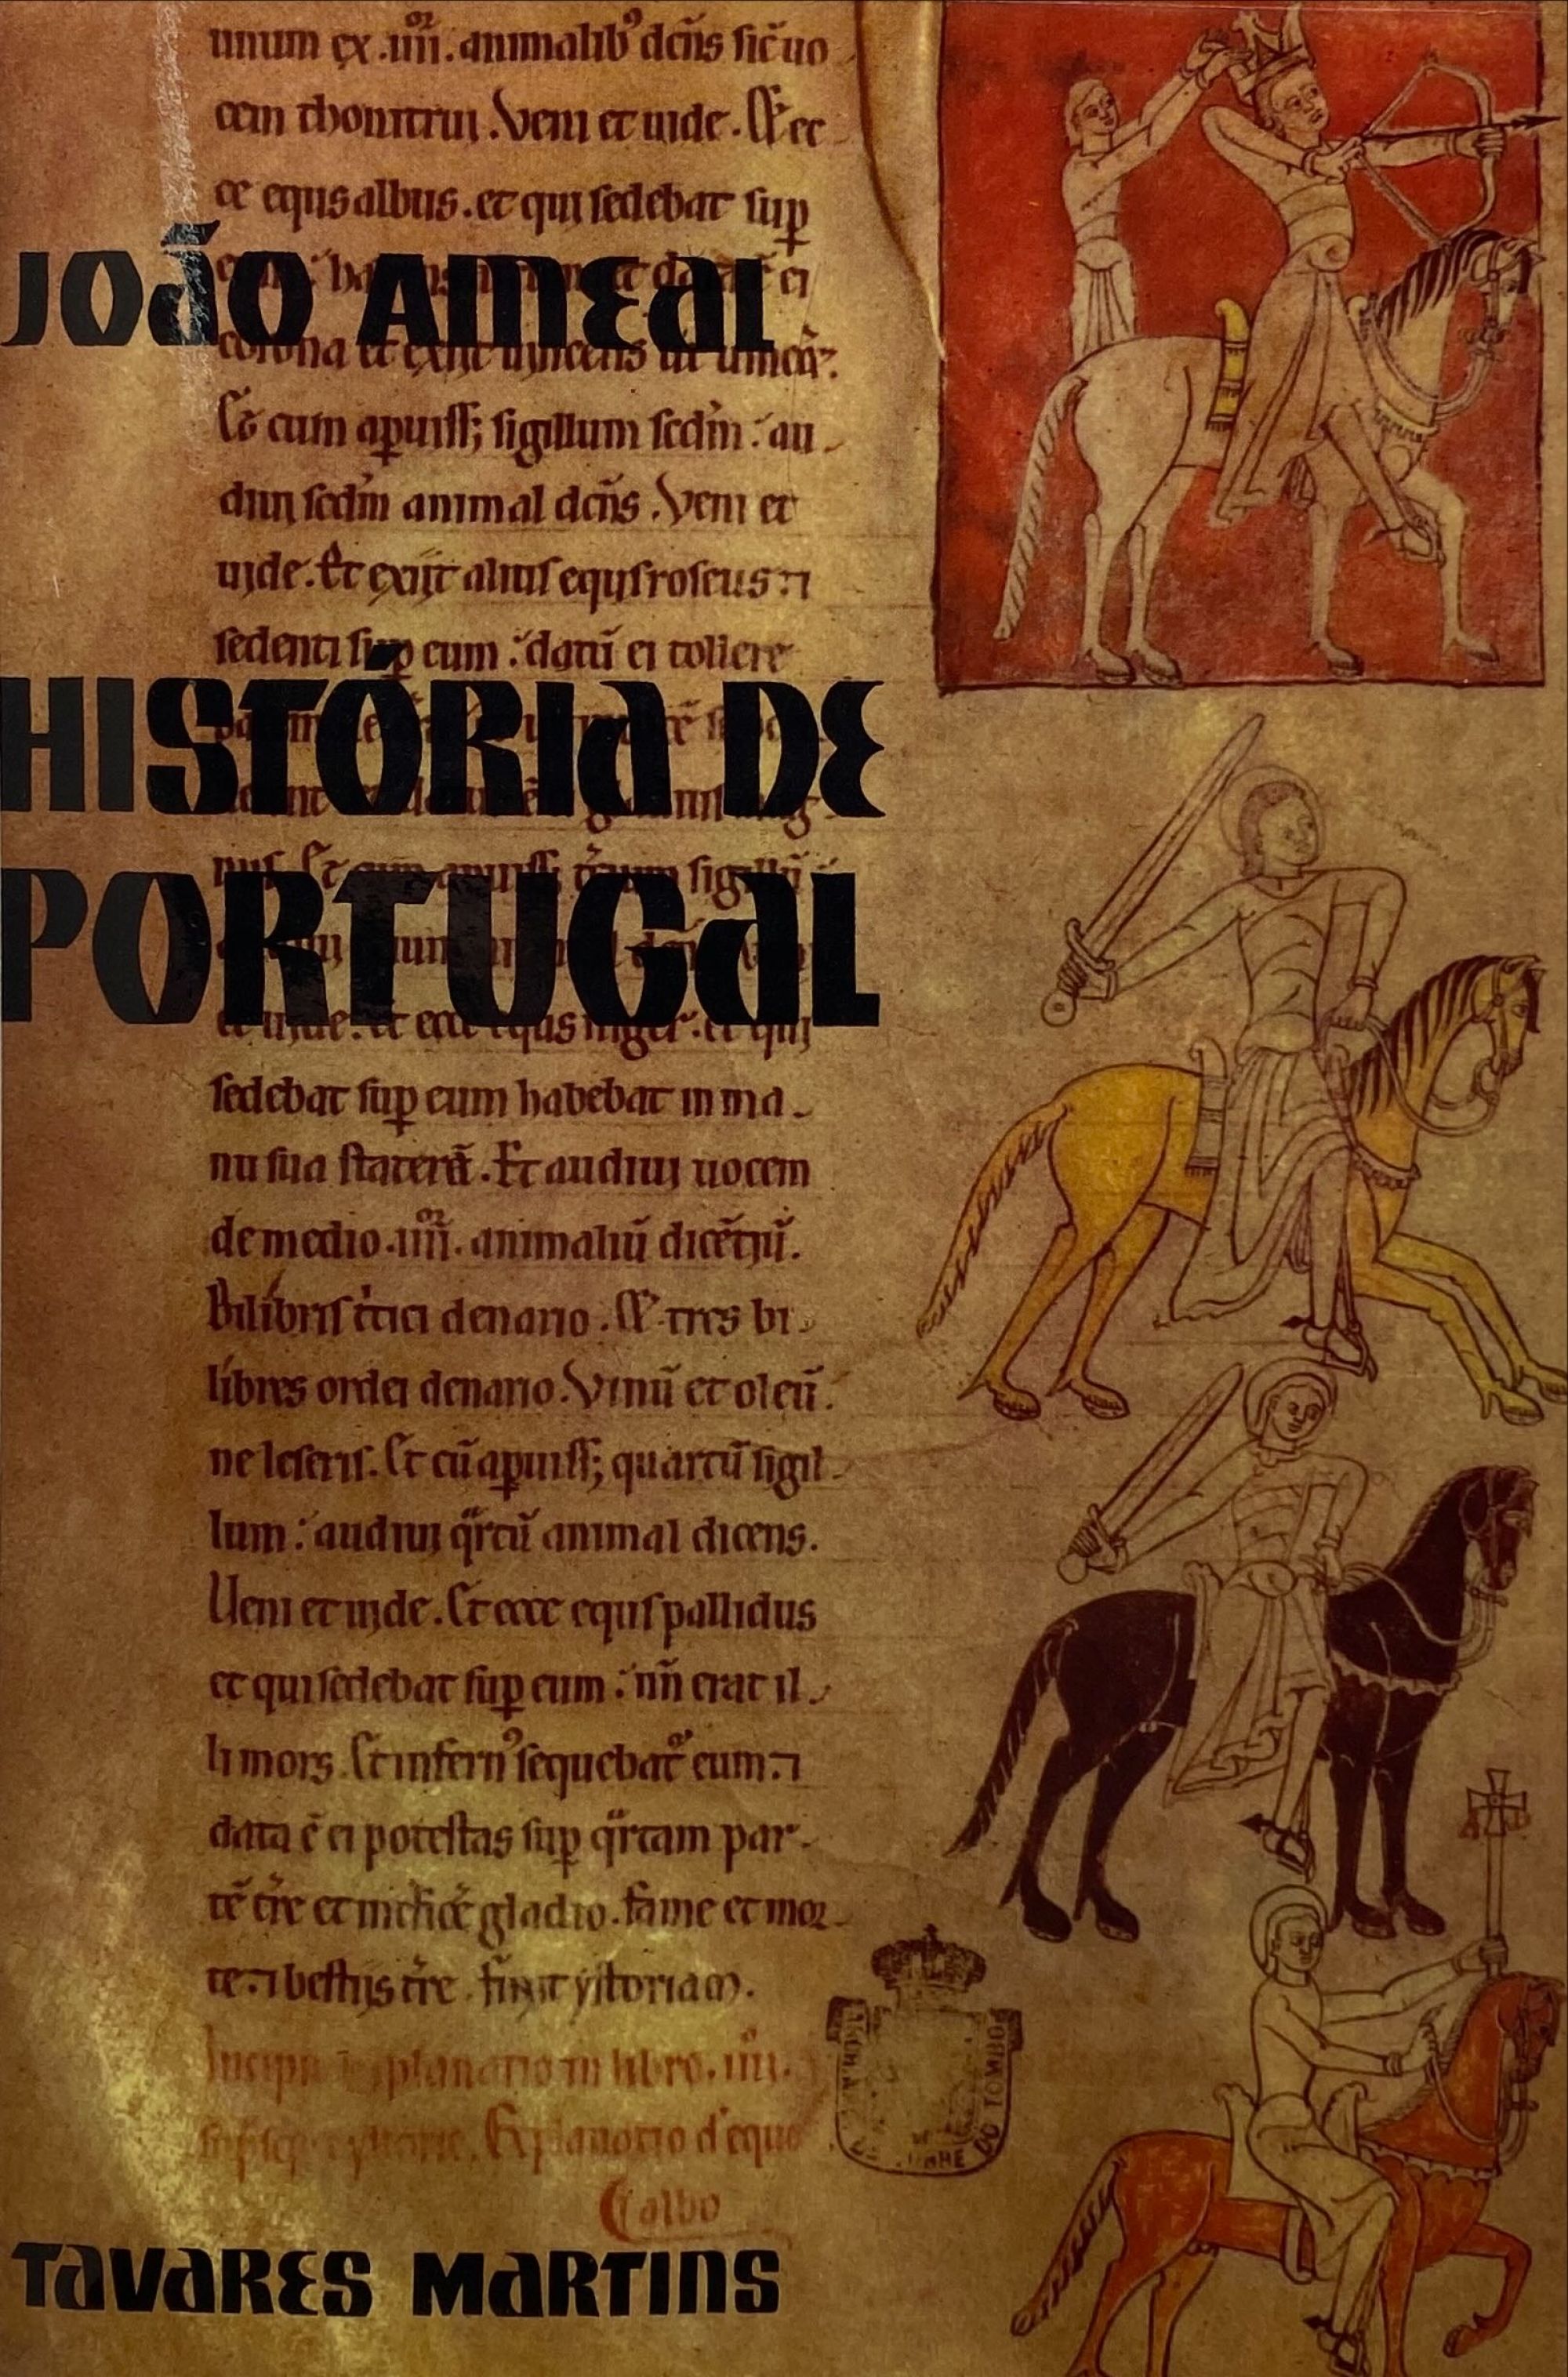 unum ex .iiii. animalib᾽ dc̄ns sic̄ uo
cem thonitrui . Veni et uide . Et ec
ce equs albus . et qui sedebat sup
JOÃO AMEAL
Et cum apuiss; sigillum scdm̄ : au
diui scdm̄ animal dcn̄s . Veni et
uide . Et exiit alius equs roseus : ⁊
sedenti sup eum : datū ei tollere
HISTÓRIA DE
PORTUGAL
sedebat sup eum habebat in ma
nu sua staterā . Et audiui uocem
de medio .iiii. animaliū dicētiū .
Bilibris tritici denario . Et tres bi
libres ordei denario . Vinū et oleū
ne leseris . Et cū apuiss; quartū sigil
lum : audiui qrtū animal dicens .
Ueni et uide . Et ecce equs pallidus
et qui sedebat sup eum : nn̄ erat il
li mors . Et infern᾽ sequebat᾽ eum : ⁊
data ē ei potestas sup qrtam par
tē tr̄e et int̄ficē gladio . fame et mor
te . ⁊ bestiis tr̄e . finit ystoriam .
Incipit explanatio in libro . iiii .
Explanatio d᾽ equo
albo
DO TOMBO
TAVARES MARTINS